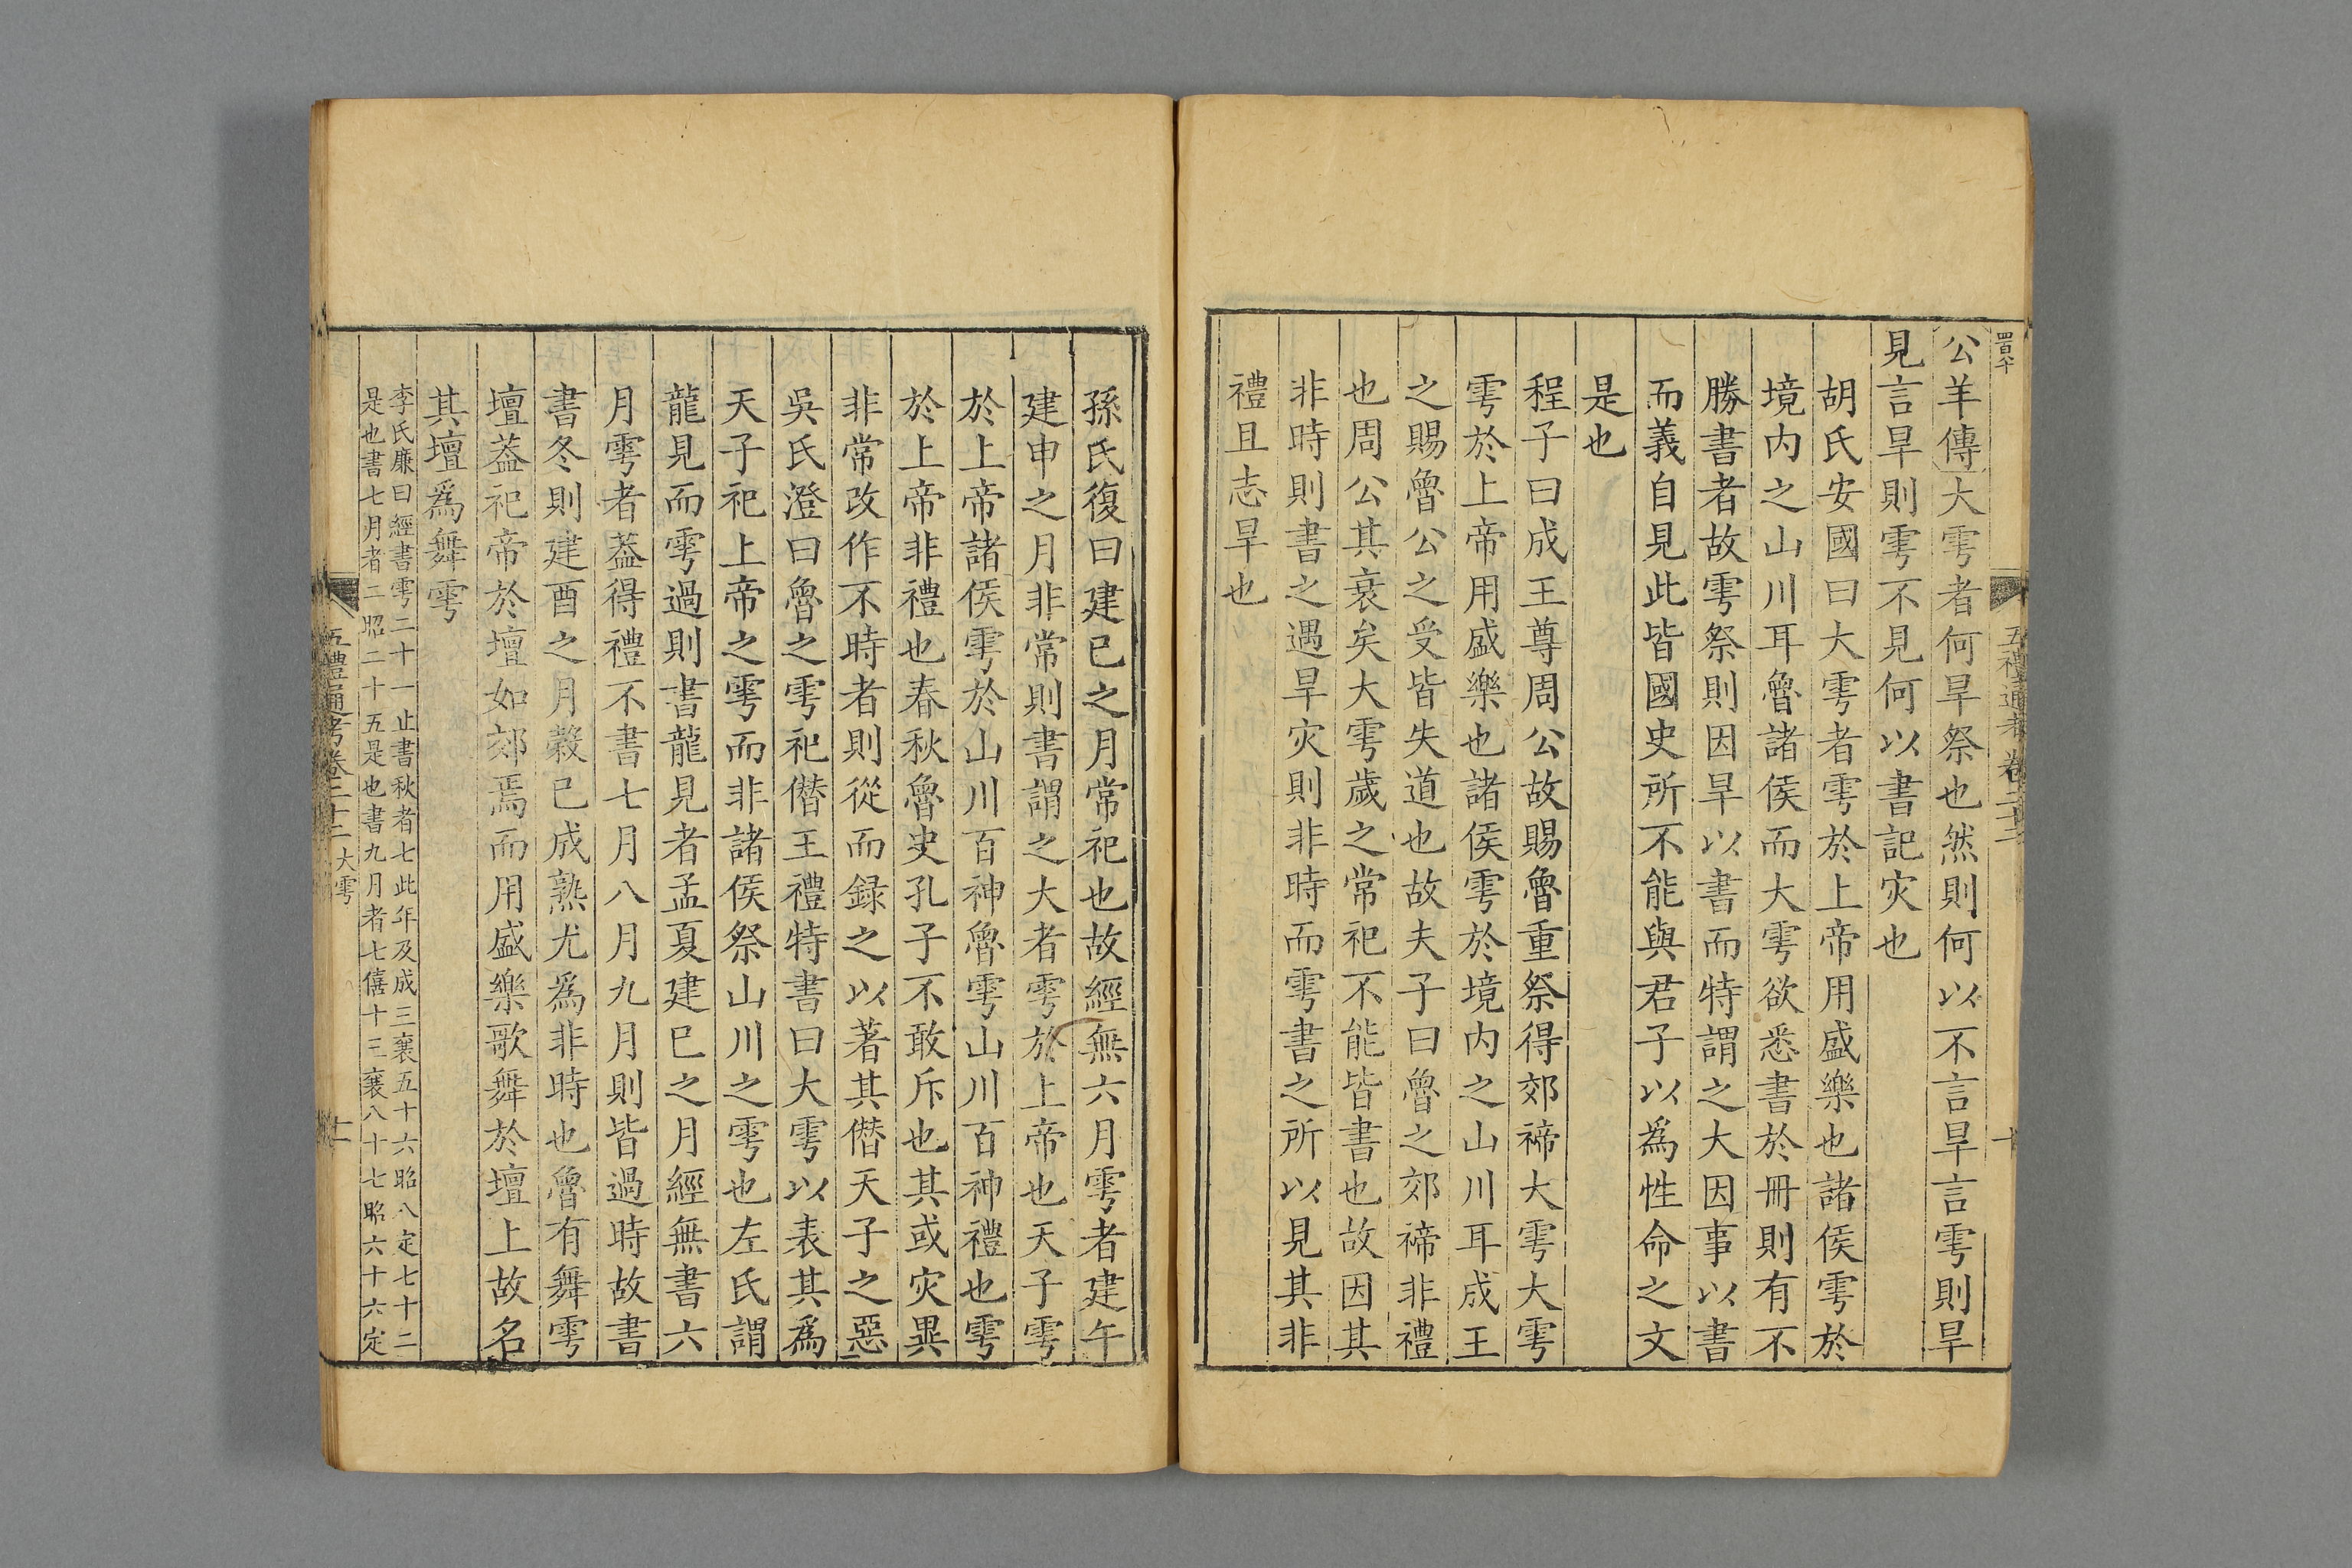 公羊傳大雩者何旱祭也然則何以不言旱言雩則旱
見言旱則雩不見何以書記灾也
胡氏安國曰大雩者雩於上帝用盛樂也諸侯雩於
境內之山川耳魯諸侯而大雩欲悉書於冊則有不
勝書者故雩祭則因旱以書而特謂之大因事以書
而義自見此皆國史所不能與君子以為性命之文
是也
程子曰成王尊周公故賜魯重祭得郊禘大雩大雩
雩於上帝用盛樂也諸侯雩於境內之山川耳成王
之賜魯公之受皆失道也故夫子曰魯之郊禘非禮
也周公其衰矣大雩歲之常祀不能皆書也故因其
非時則書之遇旱灾則非時而雩書之所以見其非
禮且志旱也
五禮通考 卷二十二
十
孫氏復曰建巳之月常祀也故經無六月雩者建午
建申之月非常則書謂之大者雩於上帝也天子雩
於上帝諸侯雩於山川百神魯雩山川百神禮也雩
於上帝非禮也春秋魯史孔子不敢斥也其或灾異
非常改作不時者則從而録之以著其僣天子之惡
吳氏澄曰魯之雩祀僣王禮特書曰大雩以表其為
天子祀上帝之雩而非諸侯祭山川之雩也左氏謂
龍見而雩過則書龍見者孟夏建巳之月經無書六
月雩者葢得禮不書七月八月九月則皆過時故書
書冬則建酉之月穀已成熟尤為非時也魯有舞雩
壇葢祀帝於壇如郊焉而用盛樂歌舞於壇上故名
其壇爲舞雩
李氏廉曰經書雩二十一止書秋者七此年及成三襄五十六昭八定七十二
是也書七月者二昭二十五是也書九月者七僖十三襄八十七昭六十六定
五禮通考卷二十二 大雩
十一